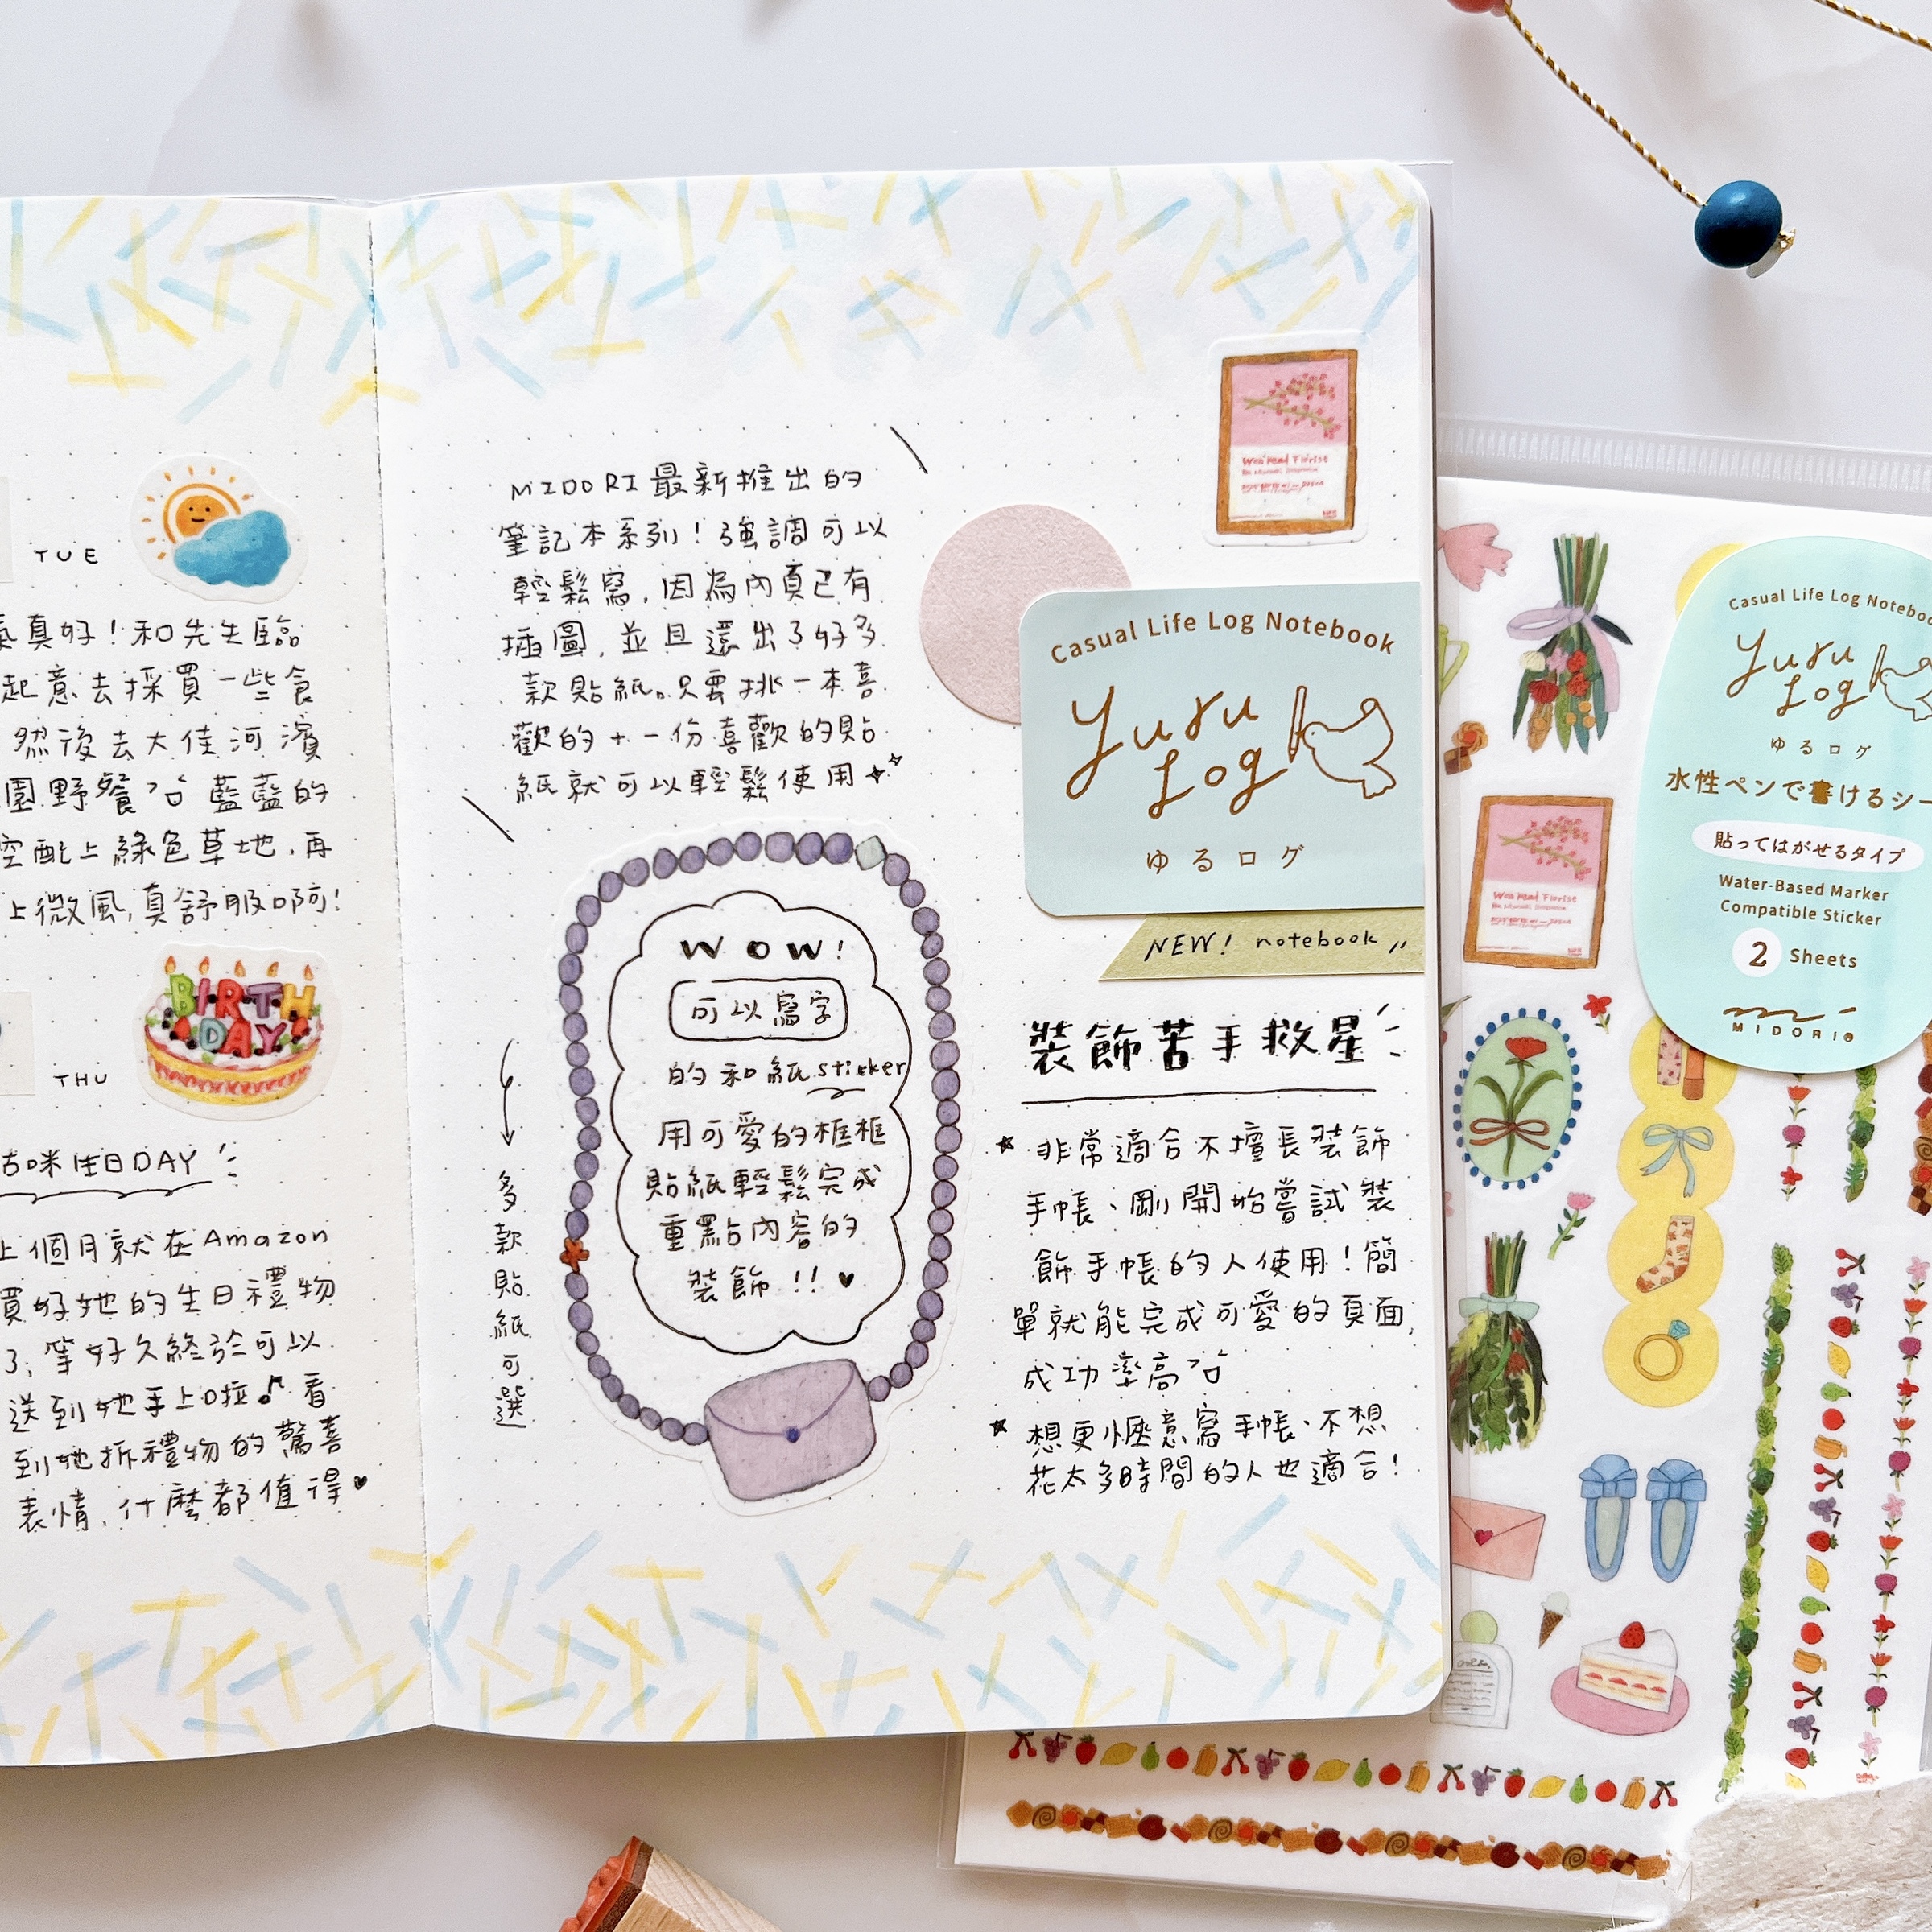 TUE
真好！和先生臨
起意去採買一些食
然後去大佳河濱
園野餐 藍藍的
空配上綠色草地，再
上微風，真舒服啊！
BIRTH
DAY
THU
咪生日DAY
上個月就在Amazon
買好她的生日禮物
了，等好久終於可以
送到她手上啦♪看
到她拆禮物的驚喜
表情，什麼都值得♥
MIDORI最新推出的
筆記本系列！強調可以
輕鬆寫，因為內頁已有
插圖，並且還出了好多
款貼紙。只要挑一本喜
歡的+一份喜歡的貼
紙就可以輕鬆使用
WOW!
可以寫字
的和紙sticker
用可愛的框框
貼紙輕鬆完成
重點內容的
裝飾!!♥
多款貼紙可選
Casual Life Log Notebook
yuru
Log
ゆるログ
NEW! notebook
裝飾苦手救星
★非常適合不擅長裝飾
手帳、剛開始嘗試裝
飾手帳的人使用！簡
單就能完成可愛的頁面，
成功率高
★想更愜意寫手帳、不想
花太多時間的人也適合！
Casual Life Log
yuru
Log
ゆるログ
水性ペンで書けるシー
貼ってはがせるタイプ
Water-Based Marker
Compatible Sticker
2 Sheets
MIDORI